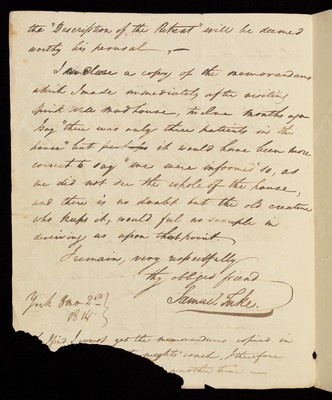 the "Description of the Retreat" will be deemed
worthy his perusal, —
I enclose a copy of the memorandums
which I made immediately after visiting
Spink Well madhouse, twelve months ago
I say "there was only three patients in the
house" but it would have been more
correct to say "we were informed" so, as
we did not see the whole of the house,
and there is no doubt but the old creature
who keeps it, would feel no scruple in
deceiving us upon that point.
I remain, very respectfully
thy obliged friend
Samuel Tuke.
York 8 mo 2d
1814
I cannot get the memorandums copied in
night's coach, I therefore
another time —